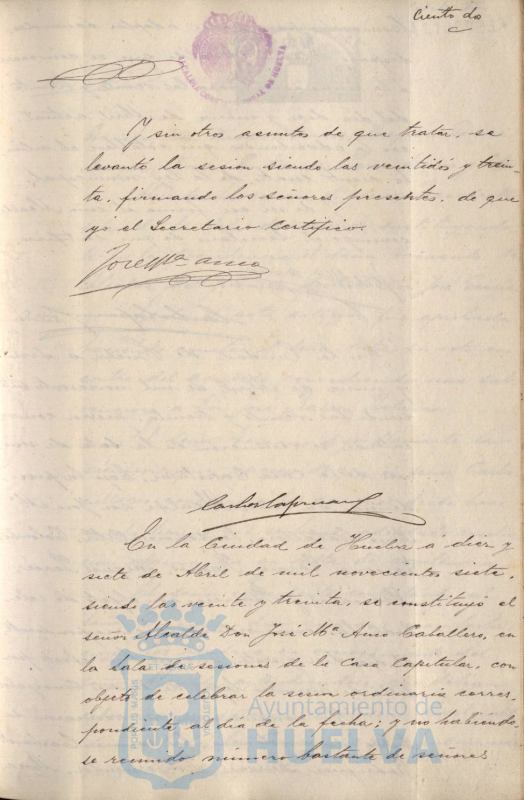 Ciento do
ALCALDIA CONSTITUCIONAL DE HUELVA
Y sin otros asuntos de que tratar, se
levantó la sesion siendo las veintidós y trein-
ta, firmando los señores presentes, de que
yo el Secretario certifico.
José Mª Amo
Carlos
En la Ciudad de Huelva á diez y
siete de Abril de mil novecientos siete,
siendo las veinte y treinta, se constituyó el
señor Alcalde Don José Mª Amo Caballero, en
la Sala de sesiones de la Casa Capitular, con
objeto de celebrar la sesion ordinaria corres-
pondiente al día de la fecha; y no habiendo
se reunido número bastante de señores
Ayuntamiento de
HUELVA